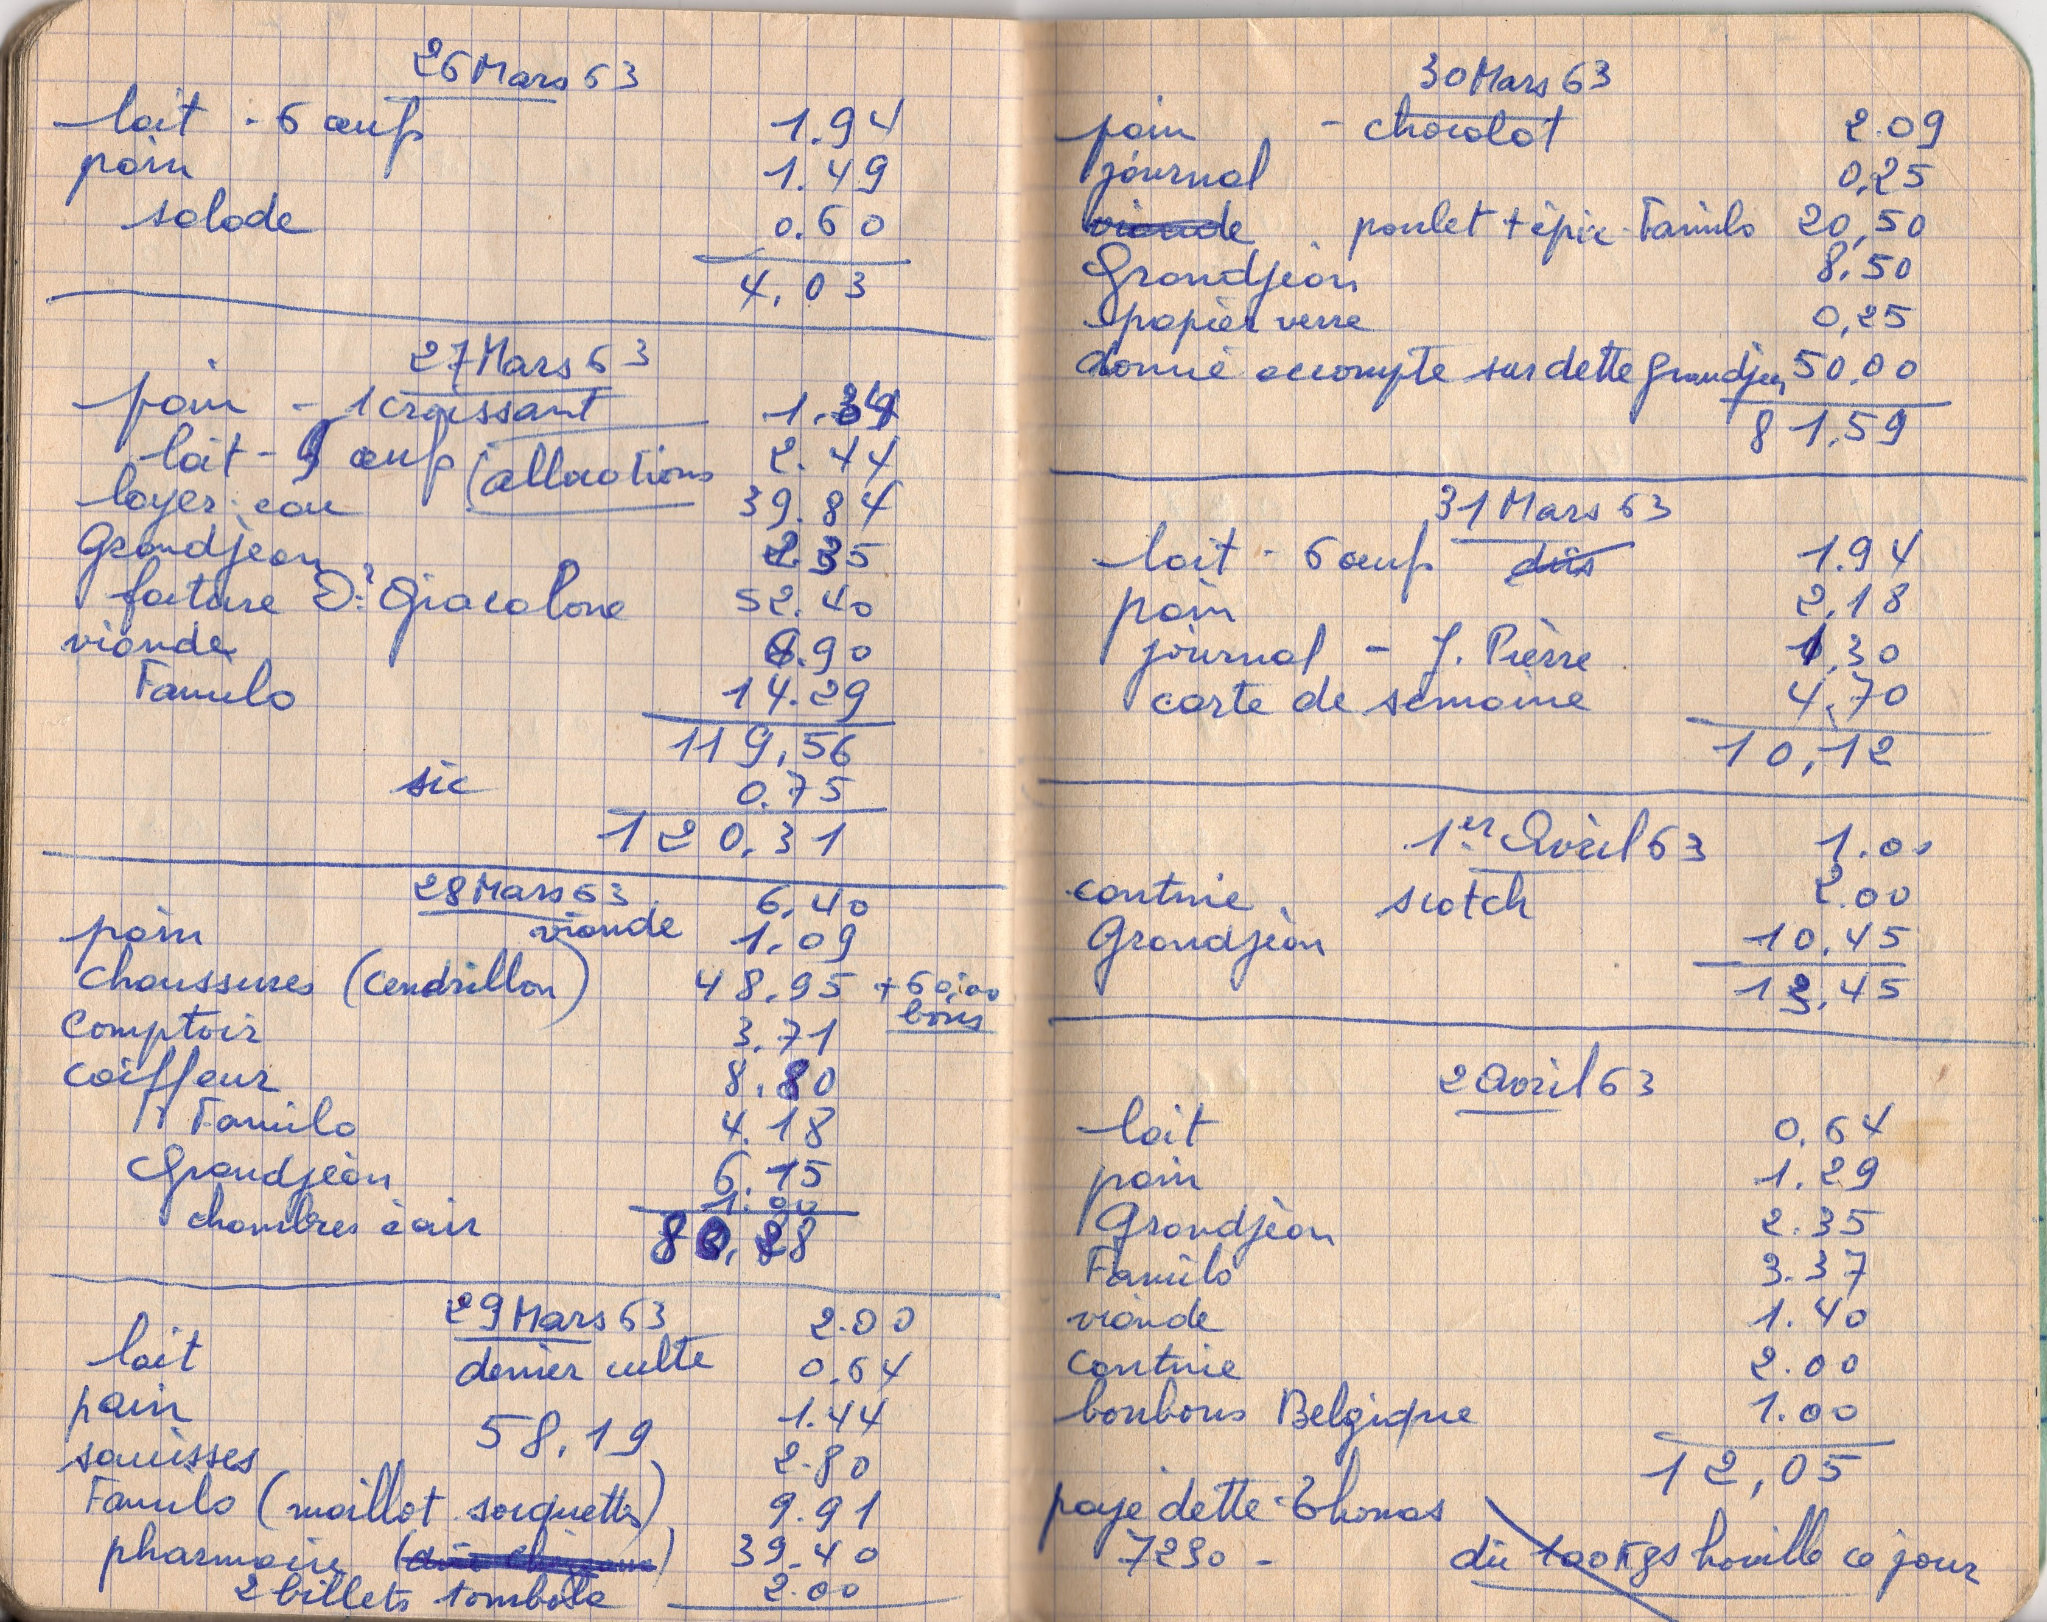 26 Mars 63
lait - 6 œufs 1.94
pain 1.49
salade 0.60
4,03
27 Mars 63
pain - 1 croissant 1.34
lait - 9 œufs (allocations 2.44
loyer eau 39.84
Grandjean 2.35
facture Dr Giacolone 52.40
viande 6.90
Familo 14.29
119,56
sic 0.75
120,31
28 Mars 63 6.40
pain viande 1.09
chaussures (Cendrillon) 48.95 + 60,00
bons
Comptoir 3.71
Coiffeur 8.80
Familo 4.18
Grandjean 6.15
chambres à air 1.00
80,28
29 Mars 63 2.00
lait denier culte 0,64
pain 1.44
58,19
saucisses 2.80
Familo (maillot socquettes) 9.91
pharmacie 39.40
2 billets tombola 2.00
30 Mars 63
pain - chocolat 2.09
journal 0,25
viande poulet + épic. Familo 20,50
Grandjean 8,50
papier verre 0,25
donné accompte sur dette Grandjean 50.00
81,59
31 Mars 63
lait - 6 œufs dûs 1.94
pain 2,18
journal - J. Pierre 1,30
carte de semaine 4,70
10,12
1er Avril 63 1.00
cantine scotch 2.00
Grandjean 10,45
13,45
2 Avril 63
lait 0,64
pain 1.29
Grandjean 2.35
Familo 3.37
viande 1.40
cantine 2.00
bonbons Belgique 1.00
12,05
payé dette Thomas
7290 - dû 100 Kgs houille ce jour